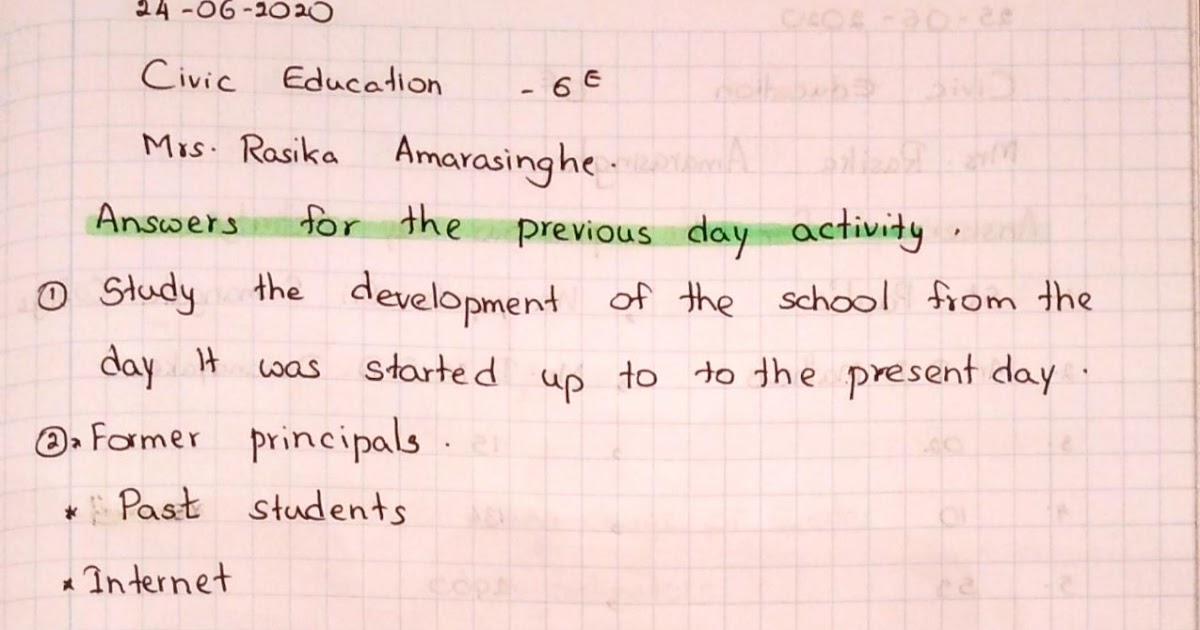 24-06-2020
Civic Education - 6 E
Mrs. Rasika Amarasinghe.
Answers for the previous day activity.
① Study the development of the school from the
day It was started up to to the present day.
②* Former principals.
* Past students
* Internet